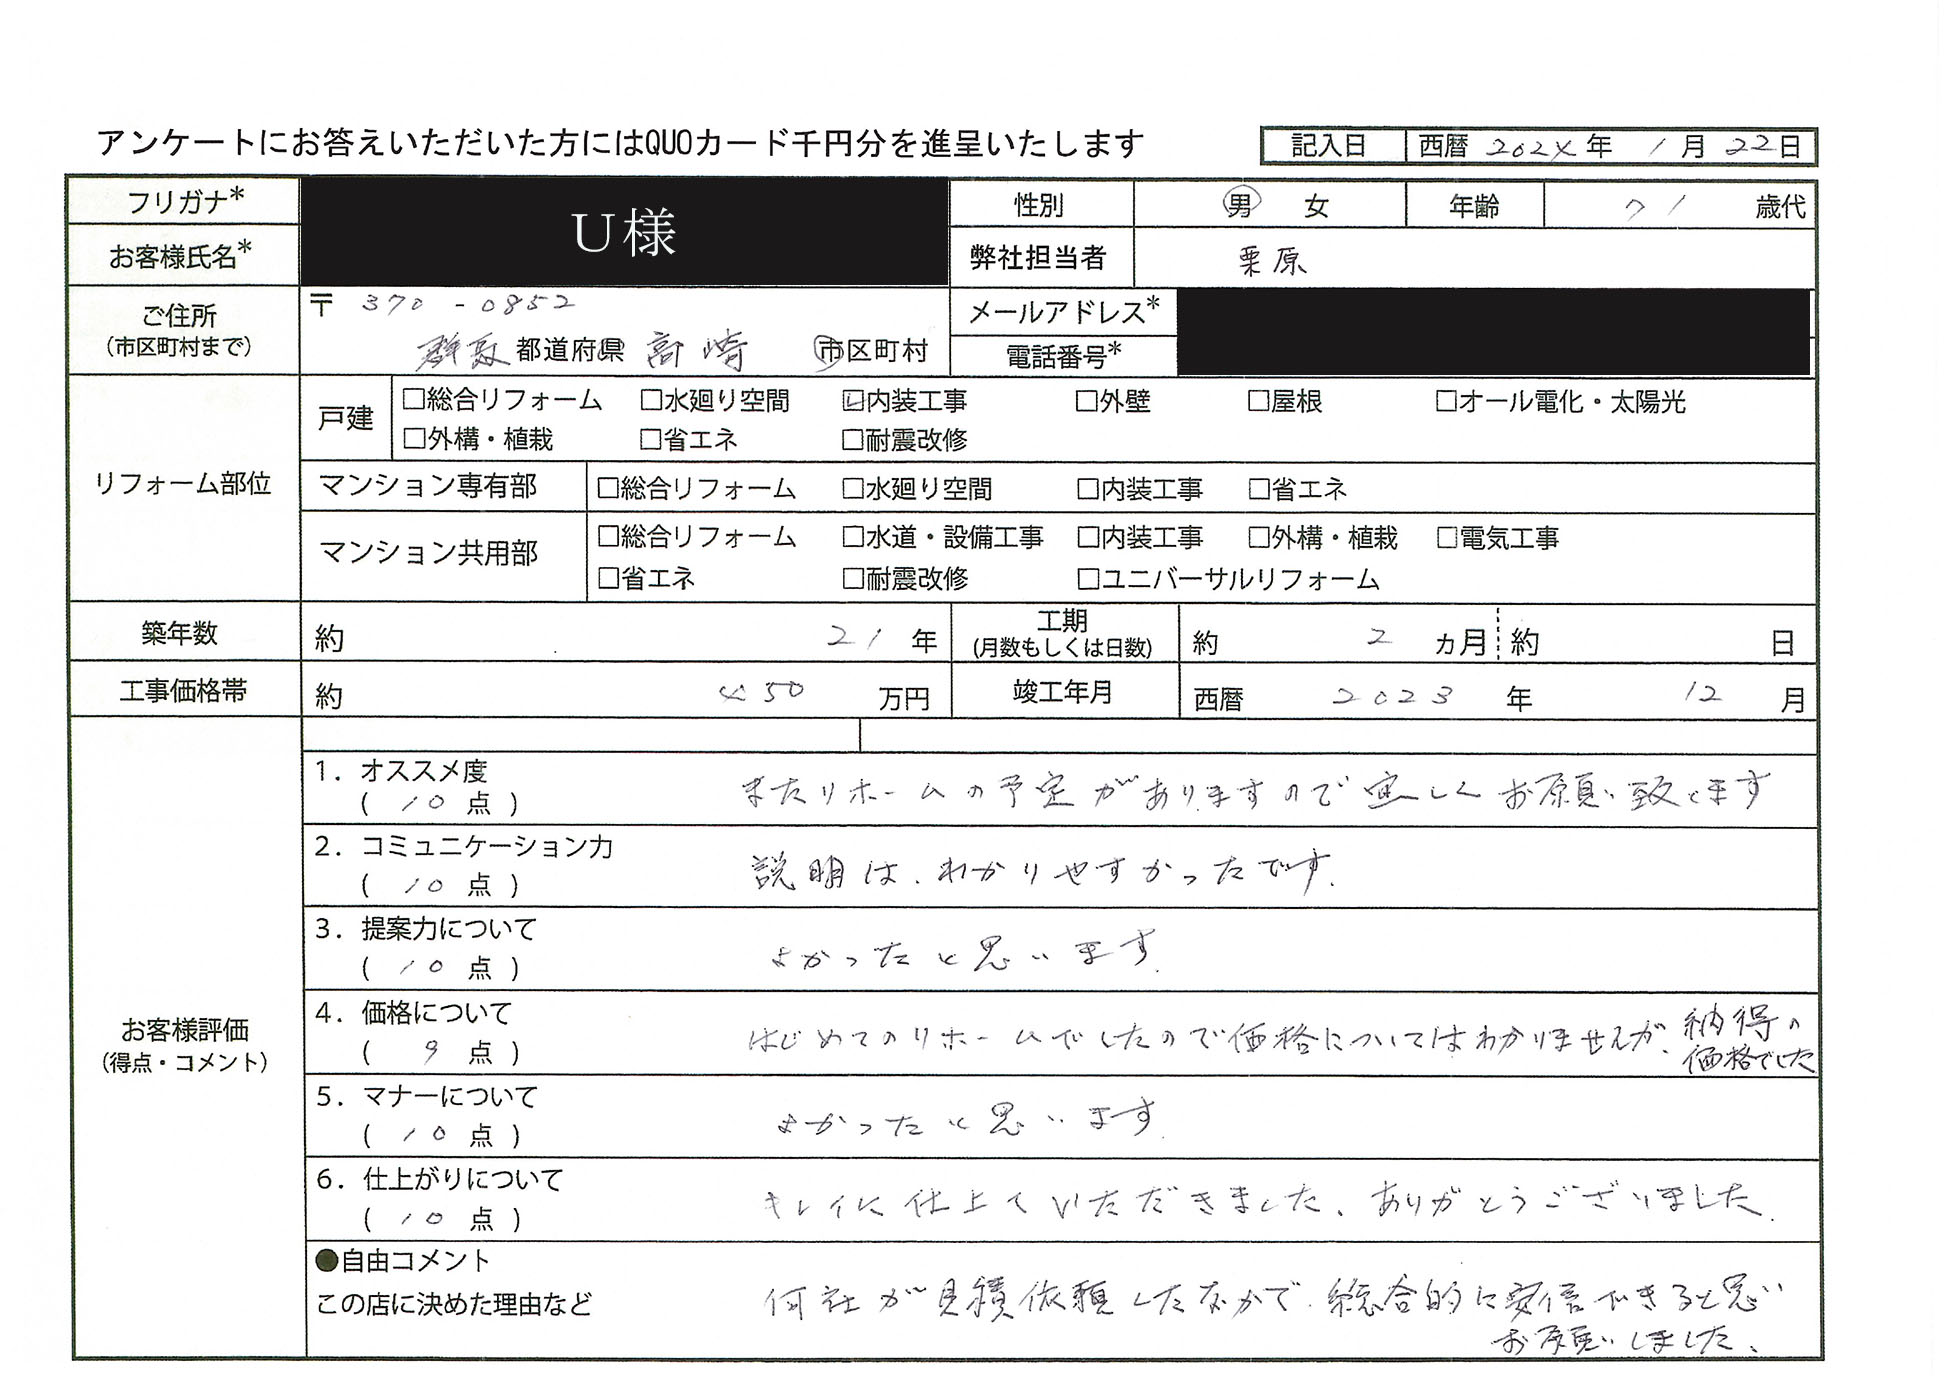 アンケートにお答えいただいた方にはQUOカード千円分を進呈いたします
記入日 西暦 2024 年 1 月 22 日
フリガナ* U様 性別 男 女 年齢 71 歳代
お客様氏名* 弊社担当者 栗原
ご住所 (市区町村まで) 〒 370-0852 メールアドレス*
群馬 都道府県 高崎 市区町村 電話番号*
リフォーム部位
戸建 □総合リフォーム □水廻り空間 ☑内装工事 □外壁 □屋根 □オール電化・太陽光
□外構・植栽 □省エネ □耐震改修
マンション専有部 □総合リフォーム □水廻り空間 □内装工事 □省エネ
マンション共用部 □総合リフォーム □水道・設備工事 □内装工事 □外構・植栽 □電気工事
□省エネ □耐震改修 □ユニバーサルリフォーム
築年数 約 21 年 工期 (月数もしくは日数) 約 2 ヵ月 約 日
工事価格帯 約 450 万円 竣工年月 西暦 2023 年 12 月
お客様評価
(得点・コメント)
1. オススメ度
( 10 点 ) またリホームの予定がありますので宜しくお願い致します
2. コミュニケーション力
( 10 点 ) 説明は、わかりやすかったです.
3. 提案力について
( 10 点 ) よかったと思います.
4. 価格について
( 9 点 ) はじめてのリホームでしたので価格についてはわかりませんが、納得の
価格でした
5. マナーについて
( 10 点 ) よかったと思います.
6. 仕上がりについて
( 10 点 ) キレイに仕上ていただきました、ありがとうございました.
●自由コメント
この店に決めた理由など 何社が見積依頼したなかで、総合的に安信できると思い
お願いしました、